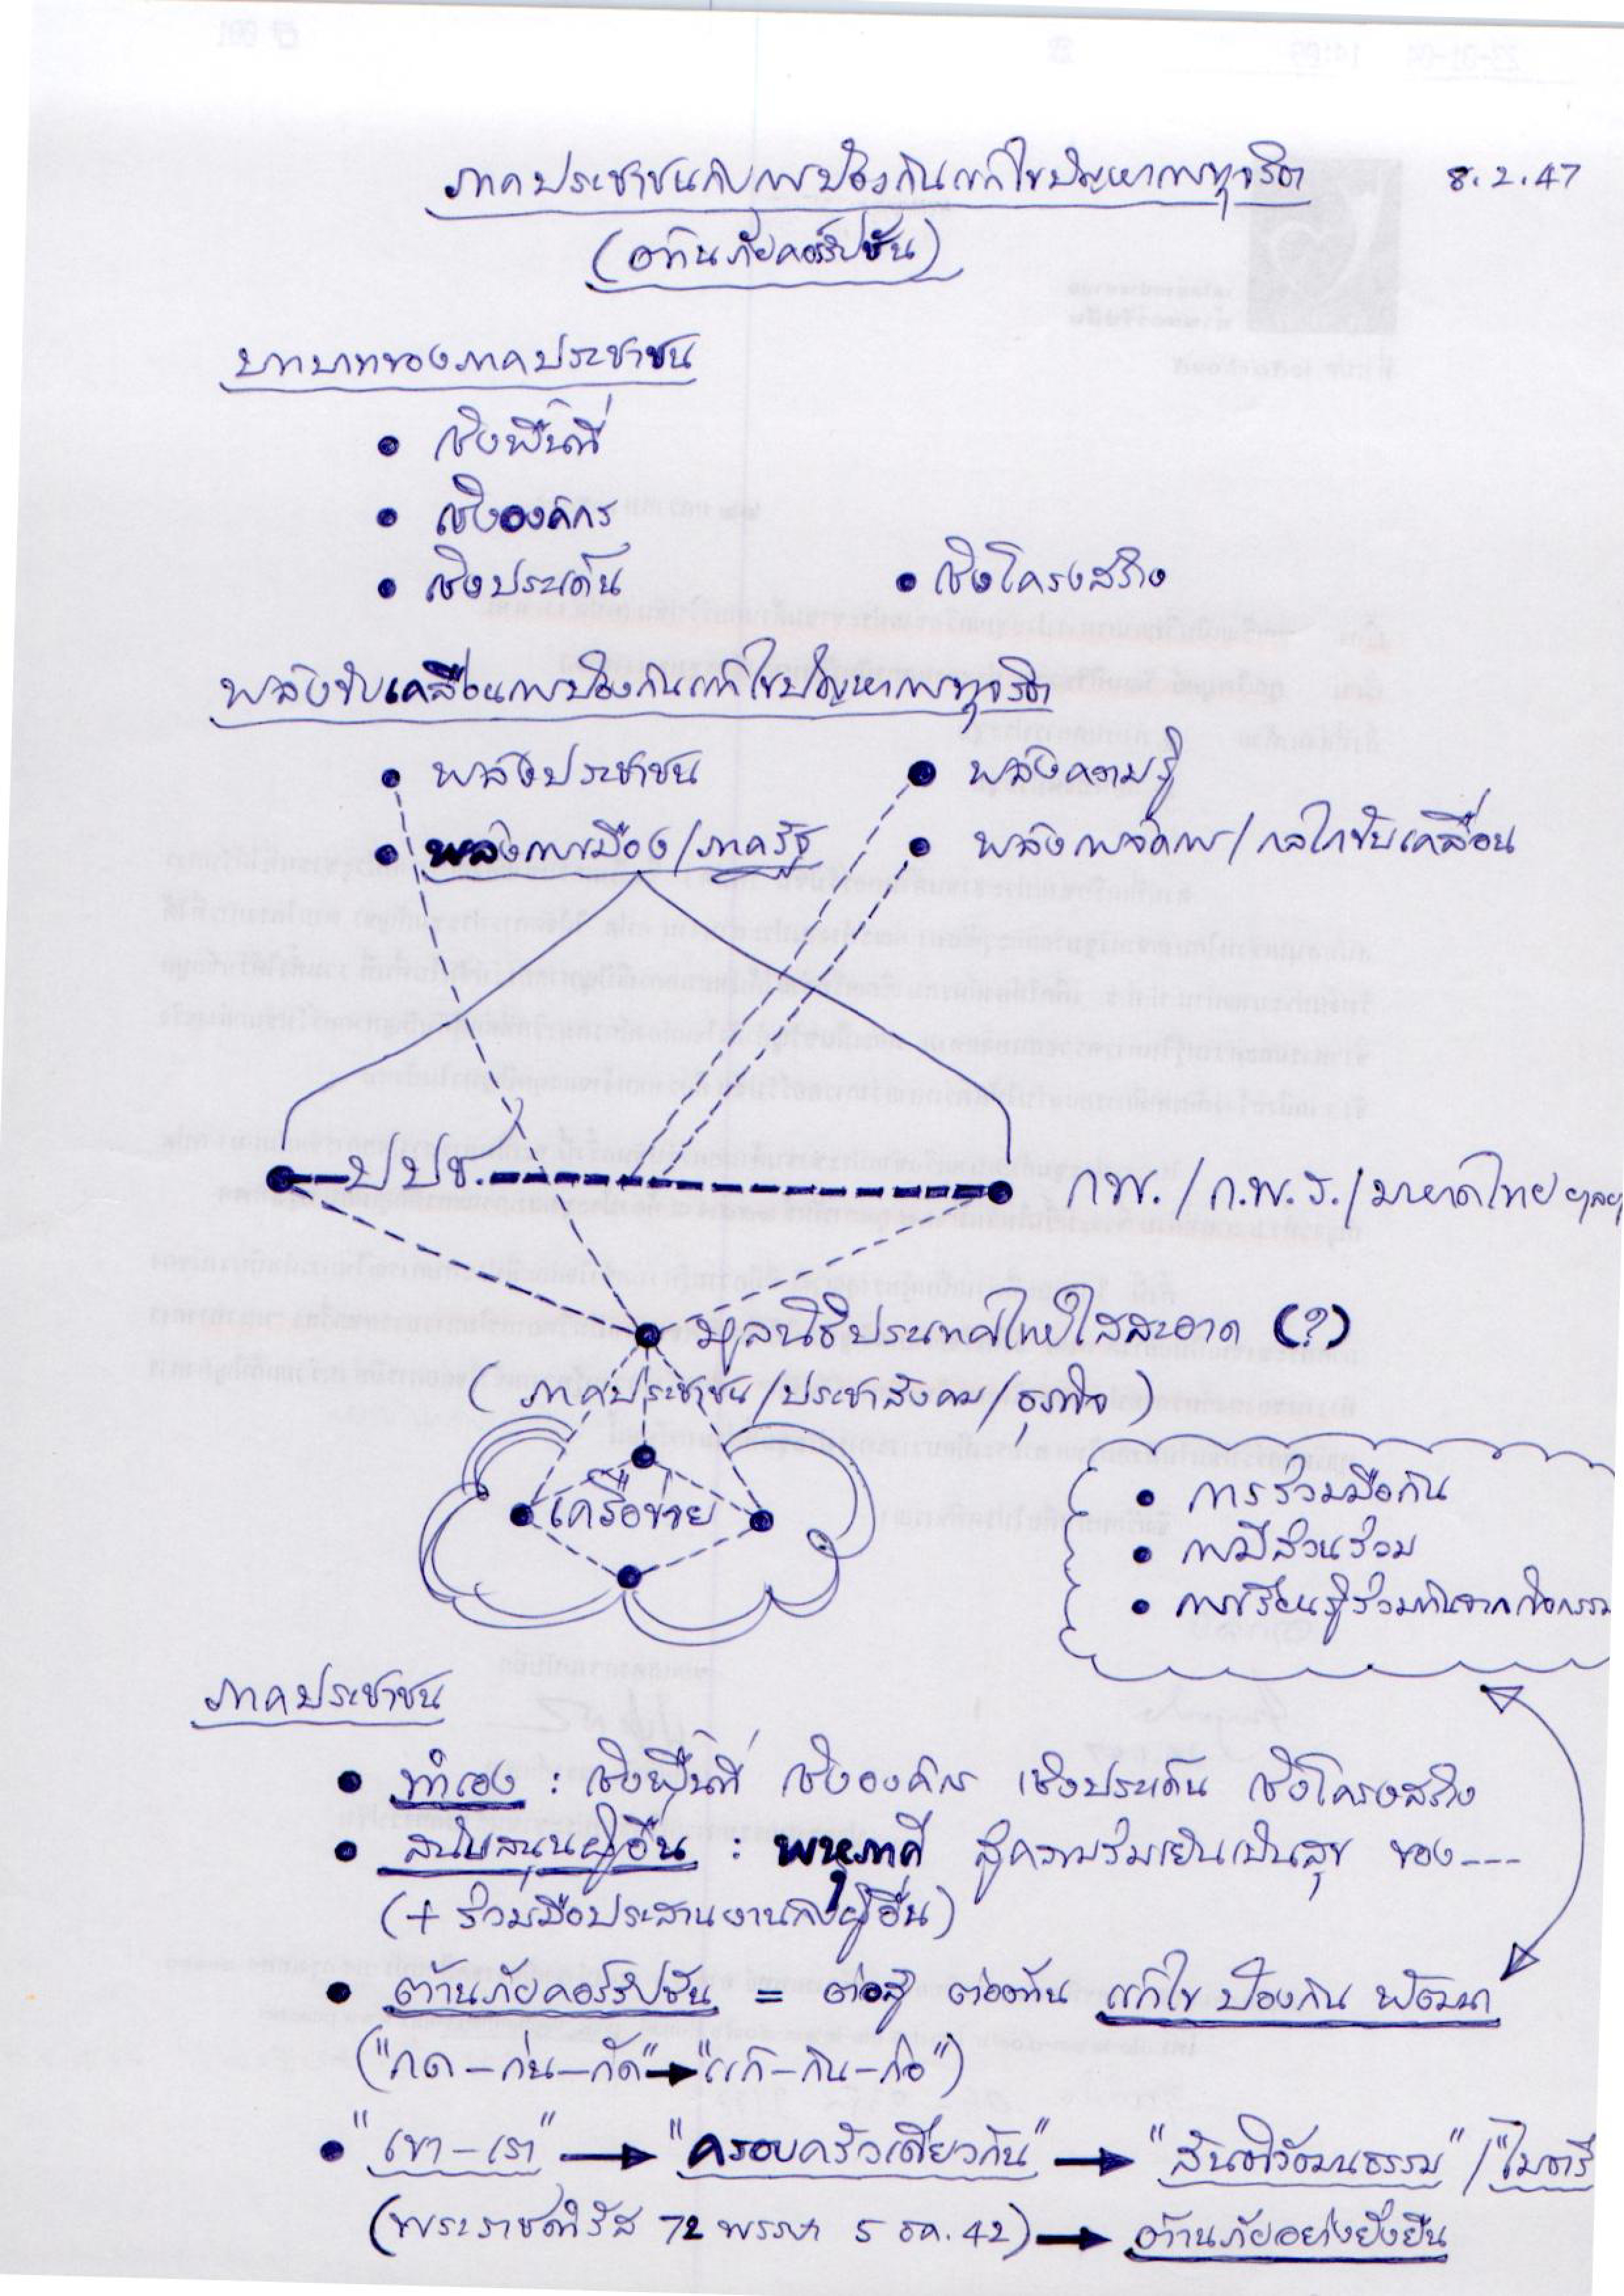 ภาคประชาชนกับการป้องกันแก้ไขปัญหาการทุจริต 8.2.47
(ต้านภัยคอร์รัปชัน)
บทบาทของภาคประชาชน
• เชิงพื้นที่
• เชิงองค์กร
• เชิงประเด็น • เชิงโครงสร้าง
พลังขับเคลื่อนการป้องกันแก้ไขปัญหาการทุจริต
• พลังประชาชน • พลังความรู้
• พลังการเมือง/ภาครัฐ • พลังการจัดการ/กลไกขับเคลื่อน
ปปช. กพ./ก.พ.ร./มหาดไทย ฯลฯ
มูลนิธิประเทศไทยใสสะอาด (?)
(ภาคประชาชน/ประชาสังคม/ธุรกิจ)
เครือข่าย
• การร่วมมือกัน
• การมีส่วนร่วม
• การเรียนรู้ร่วมกันจากกิจกรรม
ภาคประชาชน
• ทำเอง : เชิงพื้นที่ เชิงองค์กร เชิงประเด็น เชิงโครงสร้าง
• สนับสนุนผู้อื่น : พหุภาคี สู่ความร่มเย็นเป็นสุข ของ---
(+ ร่วมมือประสานงานกับผู้อื่น)
• ต้านภัยคอร์รัปชัน = ต่อสู้ ต่อต้าน แก้ไข ป้องกัน พัฒนา
("กด-ก่น-กัด"→"แก้-กัน-ก่อ")
• "เขา-เรา" → "ครอบครัวเดียวกัน" → "สันติวัฒนธรรม"/"ไมตรี
(พระราชดำรัส 72 พรรษา 5 ธค. 42) → ต้านภัยอย่างยั่งยืน